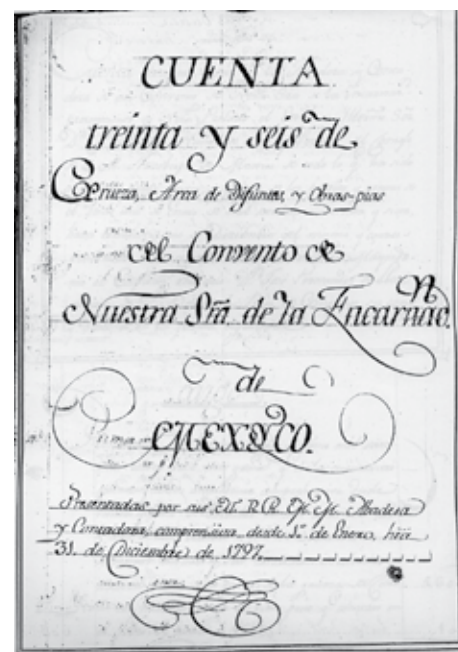 CUENTA
treinta y seis de
Grueza, Arca de Difuntas, y Obras-pias
del Convento de
Nuestra Srã. de la Encarnacõ.
de
MEXYCO.
Presentadas por sus R. R. M. M. Abadesa
y Contadora, comprensiva desde 1º de Enero, hta
31. de Diciembre de 1797.